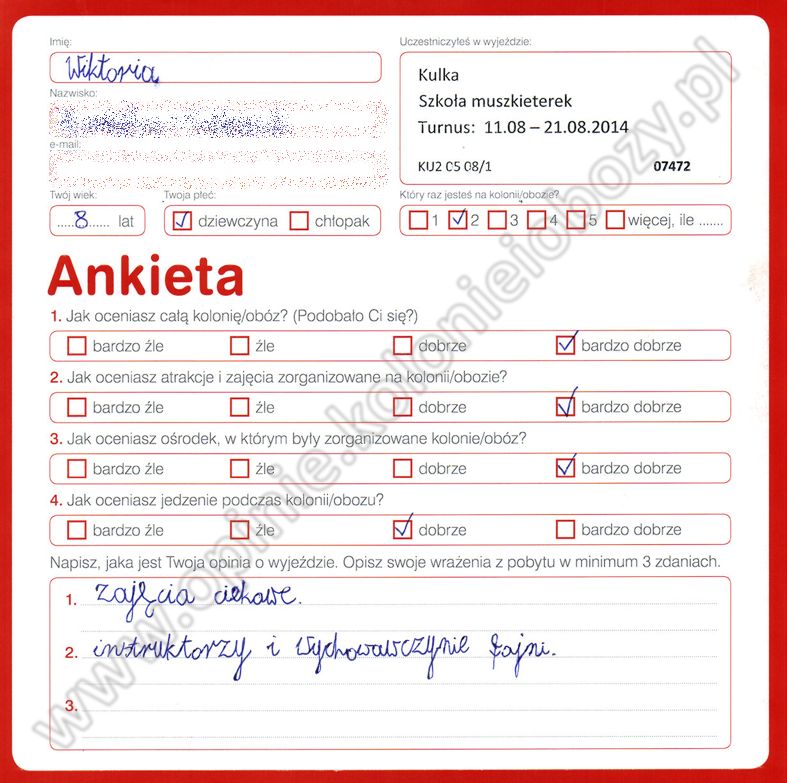 Imię:
Uczestniczyłeś w wyjeździe:
Wiktoria
Kulka
Szkoła muszkieterek
Turnus: 11.08 – 21.08.2014
KU2 05 08/1 07472
Nazwisko:
e-mail:
Twój wiek: Twoja płeć: Który raz jesteś na kolonii/obozie?
.....8...... lat dziewczyna chłopak 1 2 3 4 5 więcej, ile .......
Ankieta
1. Jak oceniasz całą kolonię/obóz? (Podobało Ci się?)
bardzo źle źle dobrze bardzo dobrze
2. Jak oceniasz atrakcje i zajęcia zorganizowane na kolonii/obozie?
bardzo źle źle dobrze bardzo dobrze
3. Jak oceniasz ośrodek, w którym były zorganizowane kolonie/obóz?
bardzo źle źle dobrze bardzo dobrze
4. Jak oceniasz jedzenie podczas kolonii/obozu?
bardzo źle źle dobrze bardzo dobrze
Napisz, jaka jest Twoja opinia o wyjeździe. Opisz swoje wrażenia z pobytu w minimum 3 zdaniach.
1. Zajęcia ciekawe.
2. instruktorzy i Wychowawczynie fajni.
3.
www.opinie.kolonieiobozy.pl